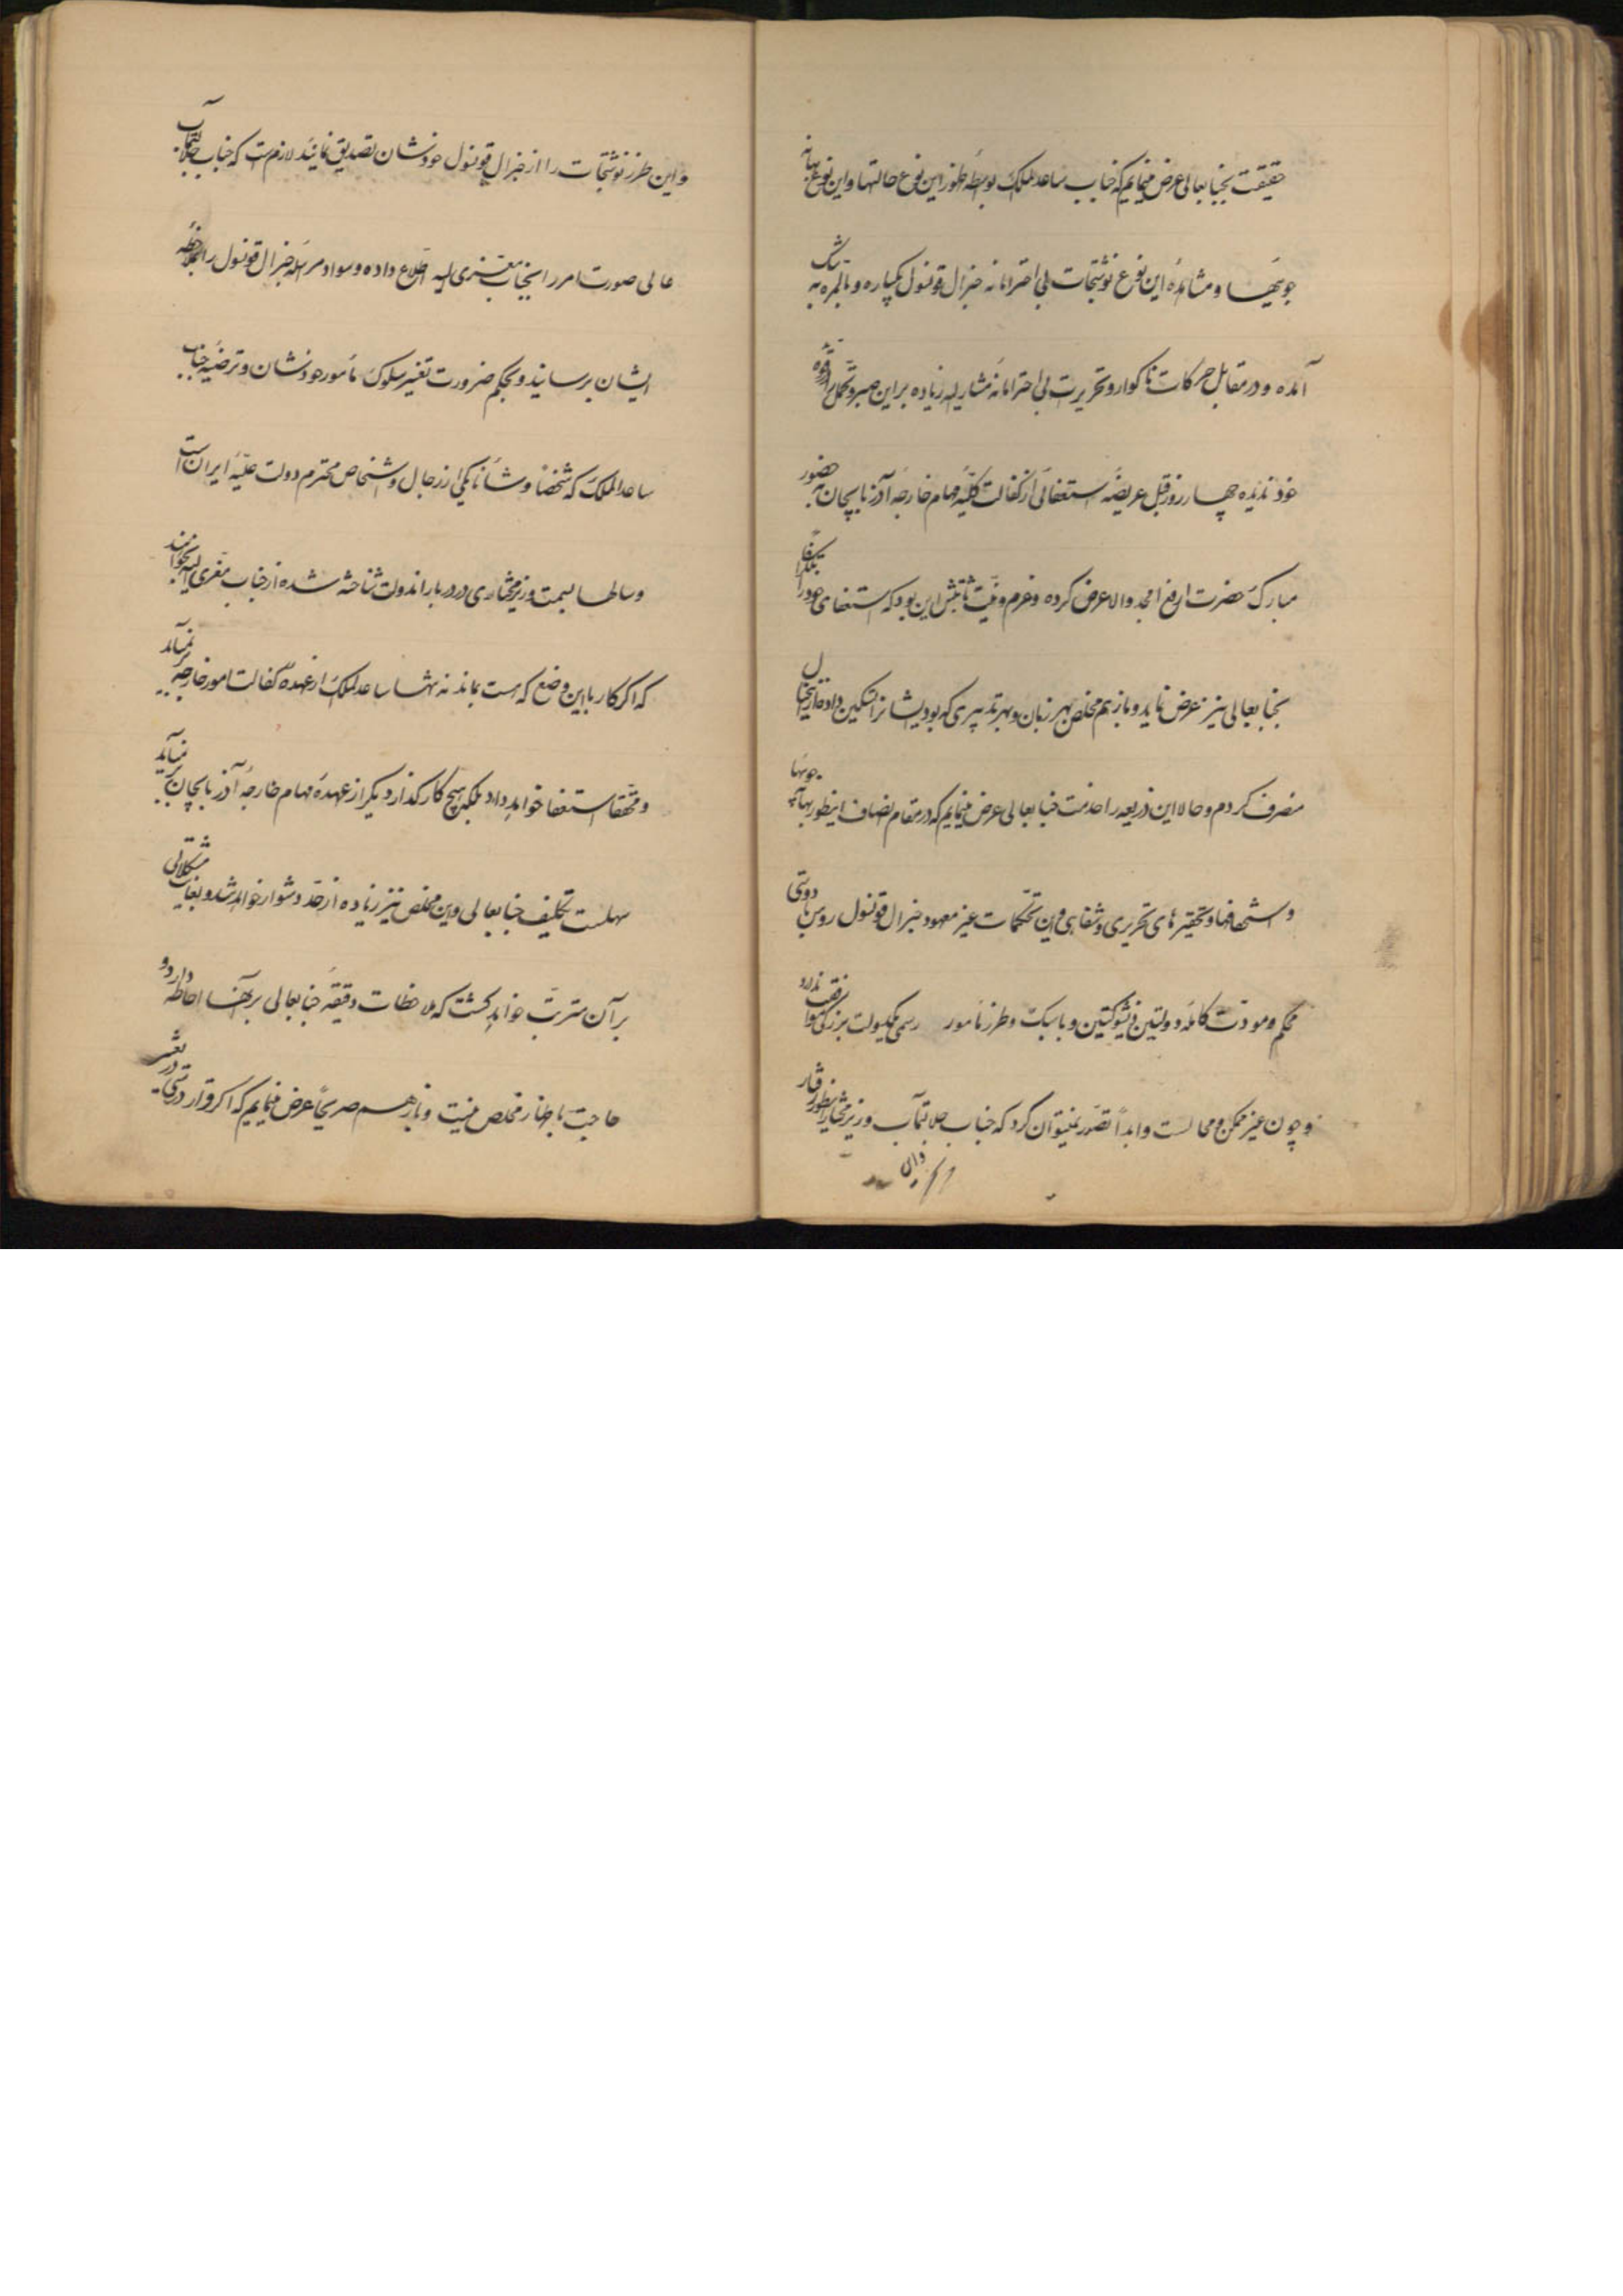 حقیقت بجنابعالی عرض مینمایم که جناب ساعدالملک بواسطه ظهور این نوع حالتها و این نوع بهانه
جوئیها و مشاهده این نوع نوشتجات بی احترامانه جنرال قونسول یکباره و بالمره به تنگ
آمده و در مقابل حرکات ناگوار و تحریرات بی احترامانه مشارالیه زیاده براین صبر و تحمل را در قوه
خود ندیده چهار روز قبل عریضه استعفائی از کفالت کلیه مهام خارجه آذربایجان به حضور
مبارک حضرت ارفع امجد والا عرض کرده و عزم و نیت ثابتش این بود که استعفای خود را تلگرافا
بجنابعالی نیز عرض نماید و باز هم مخلص بهر زبان و بهر تدبیری که بود ایشانرا تسکین داده از اینخیال
منصرف کردم و حالا این ذریعه را خدمت جنابعالی عرض مینمایم که در مقام انصاف اینطور بهانه جوئیها
و استخفافها و تحقیرهای تحریری و شفاهی و این تحکمات غیر معهود جنرال قونسول روس با دوستی
محکم و مودت کامله دولتین ذیشوکتین و با سبک و طرز مأمور رسمی یکدولت بزرگی موافقت ندارد
و چون غیر ممکن و محالست و ابداً تصور نمیتوان کرد که جناب جلالتمآب وزیر مختار اینطور رفتار
و این
و این طرز نوشتجات را از جنرال قونسول خودشان تصدیق نمایند لازم است که جناب جلالتمآب
عالی صورت امر را بجناب معزی الیه اطلاع داده و سواد مراسله جنرال قونسول را بملاحظه
ایشان برسانید و بحکم ضرورت تغییر سلوک مأمور خودشان و ترضیه جناب
ساعدالملک که شخصاً و شأناً یکی از رجال و اشخاص محترم دولت علیه ایران است
و سالها بسمت وزیر مختاری در دربار اندولت شناخته شده از جناب معزی الیه بخواهند
که اگر کار باین وضع که هست بماند نه تنها ساعدالملک از عهده کفالت امور خارجه بر نمیآید
و محققا استعفا خواهد داد بلکه هیچ کارگذار دیگر از عهده مهام خارجه آذربایجان بر نمیآید
سهلست تکلیف جنابعالی و این مخلص نیز زیاده از حد دشوار خواهد شد و بغایت مشکلاتی
بر آن مترتب خواهد گشت که ملاحظات دقیقه جنابعالی بر آنها احاطه دارد و
حاجت باظهار مخلص نیست و باز هم صریحاً عرض مینمایم که اگر قرار درستی در تغییر